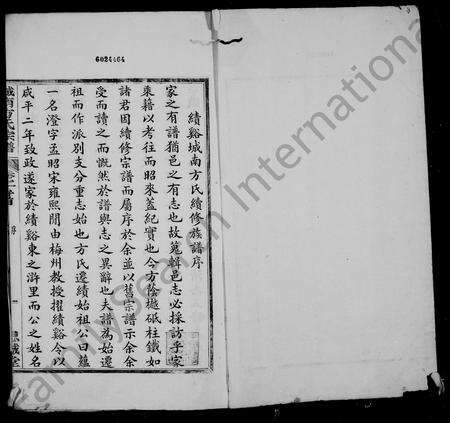 6024464
績谿城南方氏續修族譜序
家之有譜猶邑之有志也故蒐輯邑志必採訪乎家
乘籍以考往而昭來蓋紀實也今方蔭樾砥柱鐵如
諸君因續修宗譜而屬序於余並以舊宗譜示余余
受而讀之而慨然於譜與志之異辭也夫譜為始遷
祖而作派別支分重志始也方氏遷績始祖公曰蘊
一名澄字孟昭宋雍熙間由梅州教授擢績谿令以
咸平二年致政遂家於績谿東之滸里而公之姓名
城南方氏宗譜 卷首 序 一
FamilySearch International
FamilySearch International